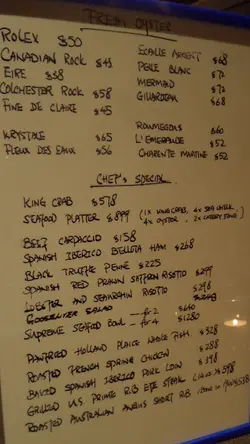 FRESH OYSTER
ROLEX $50
CANADIAN ROCK $43
EIRE $38
COLCHESTER ROCK $58
FINE DE CLAIRE $45
KRYSTALE $65
FLEUR DES EAUX $56
ECAILLE ARGENT $68
PERLE BLANC $72
MERMAID $72
GILLARDEAU $68
ROUMEGOUS $60
L'EMERAUDE $52
CHARENTE MARTINE $52
CHEF'S SPECIAL
KING CRAB $578
SEAFOOD PLATTER $899 (1x KING CRAB, 4x SEA URCHIN
4x OYSTER, 2x CHERRY STONE)
BEEF CARPACCIO $158
SPANISH IBERICO BELLOTA HAM $268
BLACK TRUFFLE PENNE $225
SPANISH RED PRAWN SAFFRON RISOTTO $299
LOBSTER AND SEAURCHIN RISOTTO $298
SALAD
SUPREME SEAFOOD BOWL - for 2 $640
- for 4 $1280
PANFRIED HOLLAND PLAICE WHOLE FISH $328
ROASTED FRENCH SPRING CHICKEN $288
BAKED SPANISH IBERICO PORK LOIN $398
GRILLED U.S. PRIME RIB EYE STEAK
ROASTED AUSTRALIAN ANGUS SHORT RIB